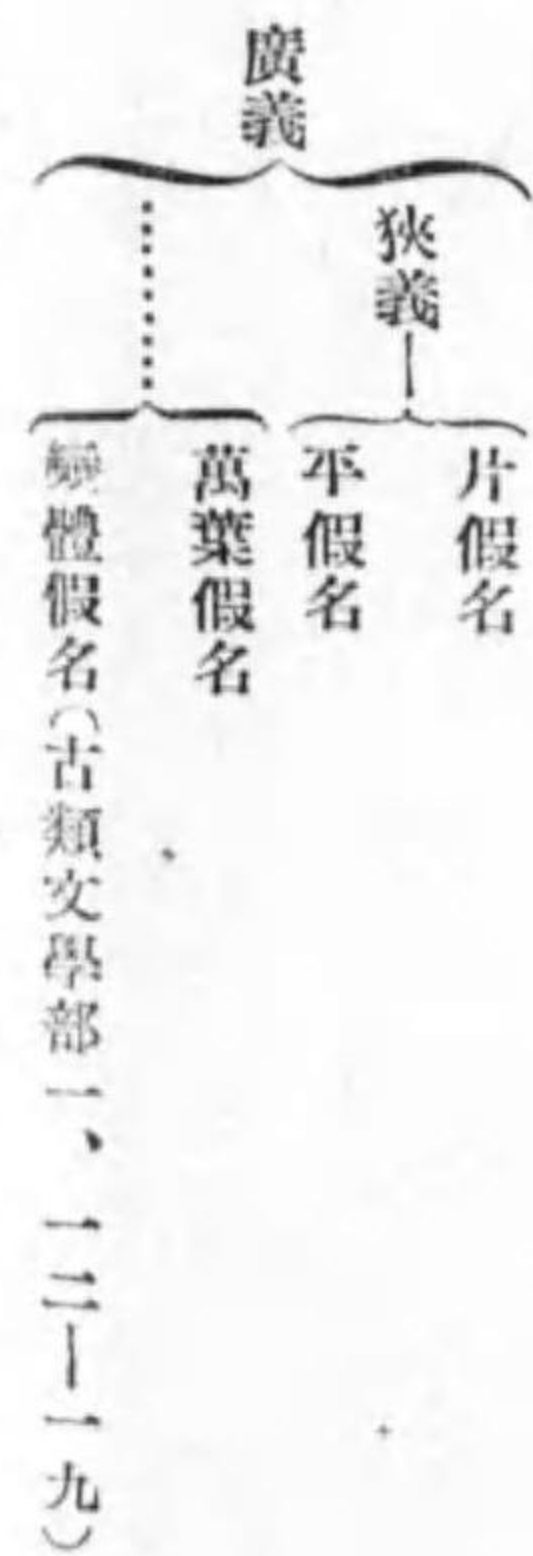 廣義
狹義
片假名
平假名
萬葉假名
變體假名（古類文學部一、一二—一九）